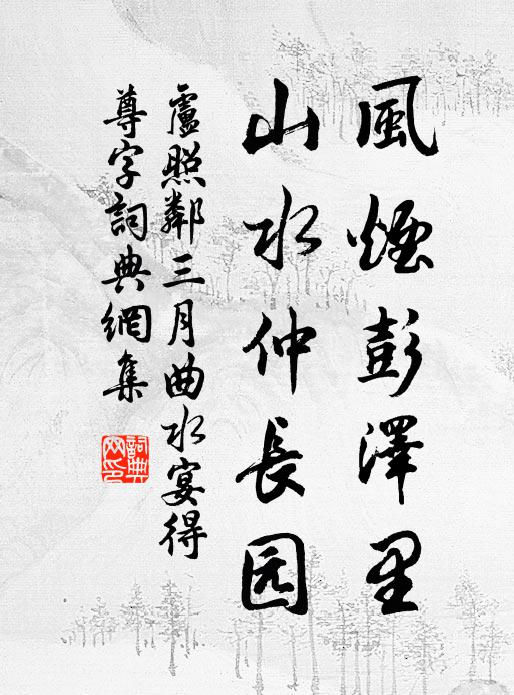 風煙彭澤里
山水仲長园
盧照鄰三月曲水宴得
尊字詞典網集
詞典网印